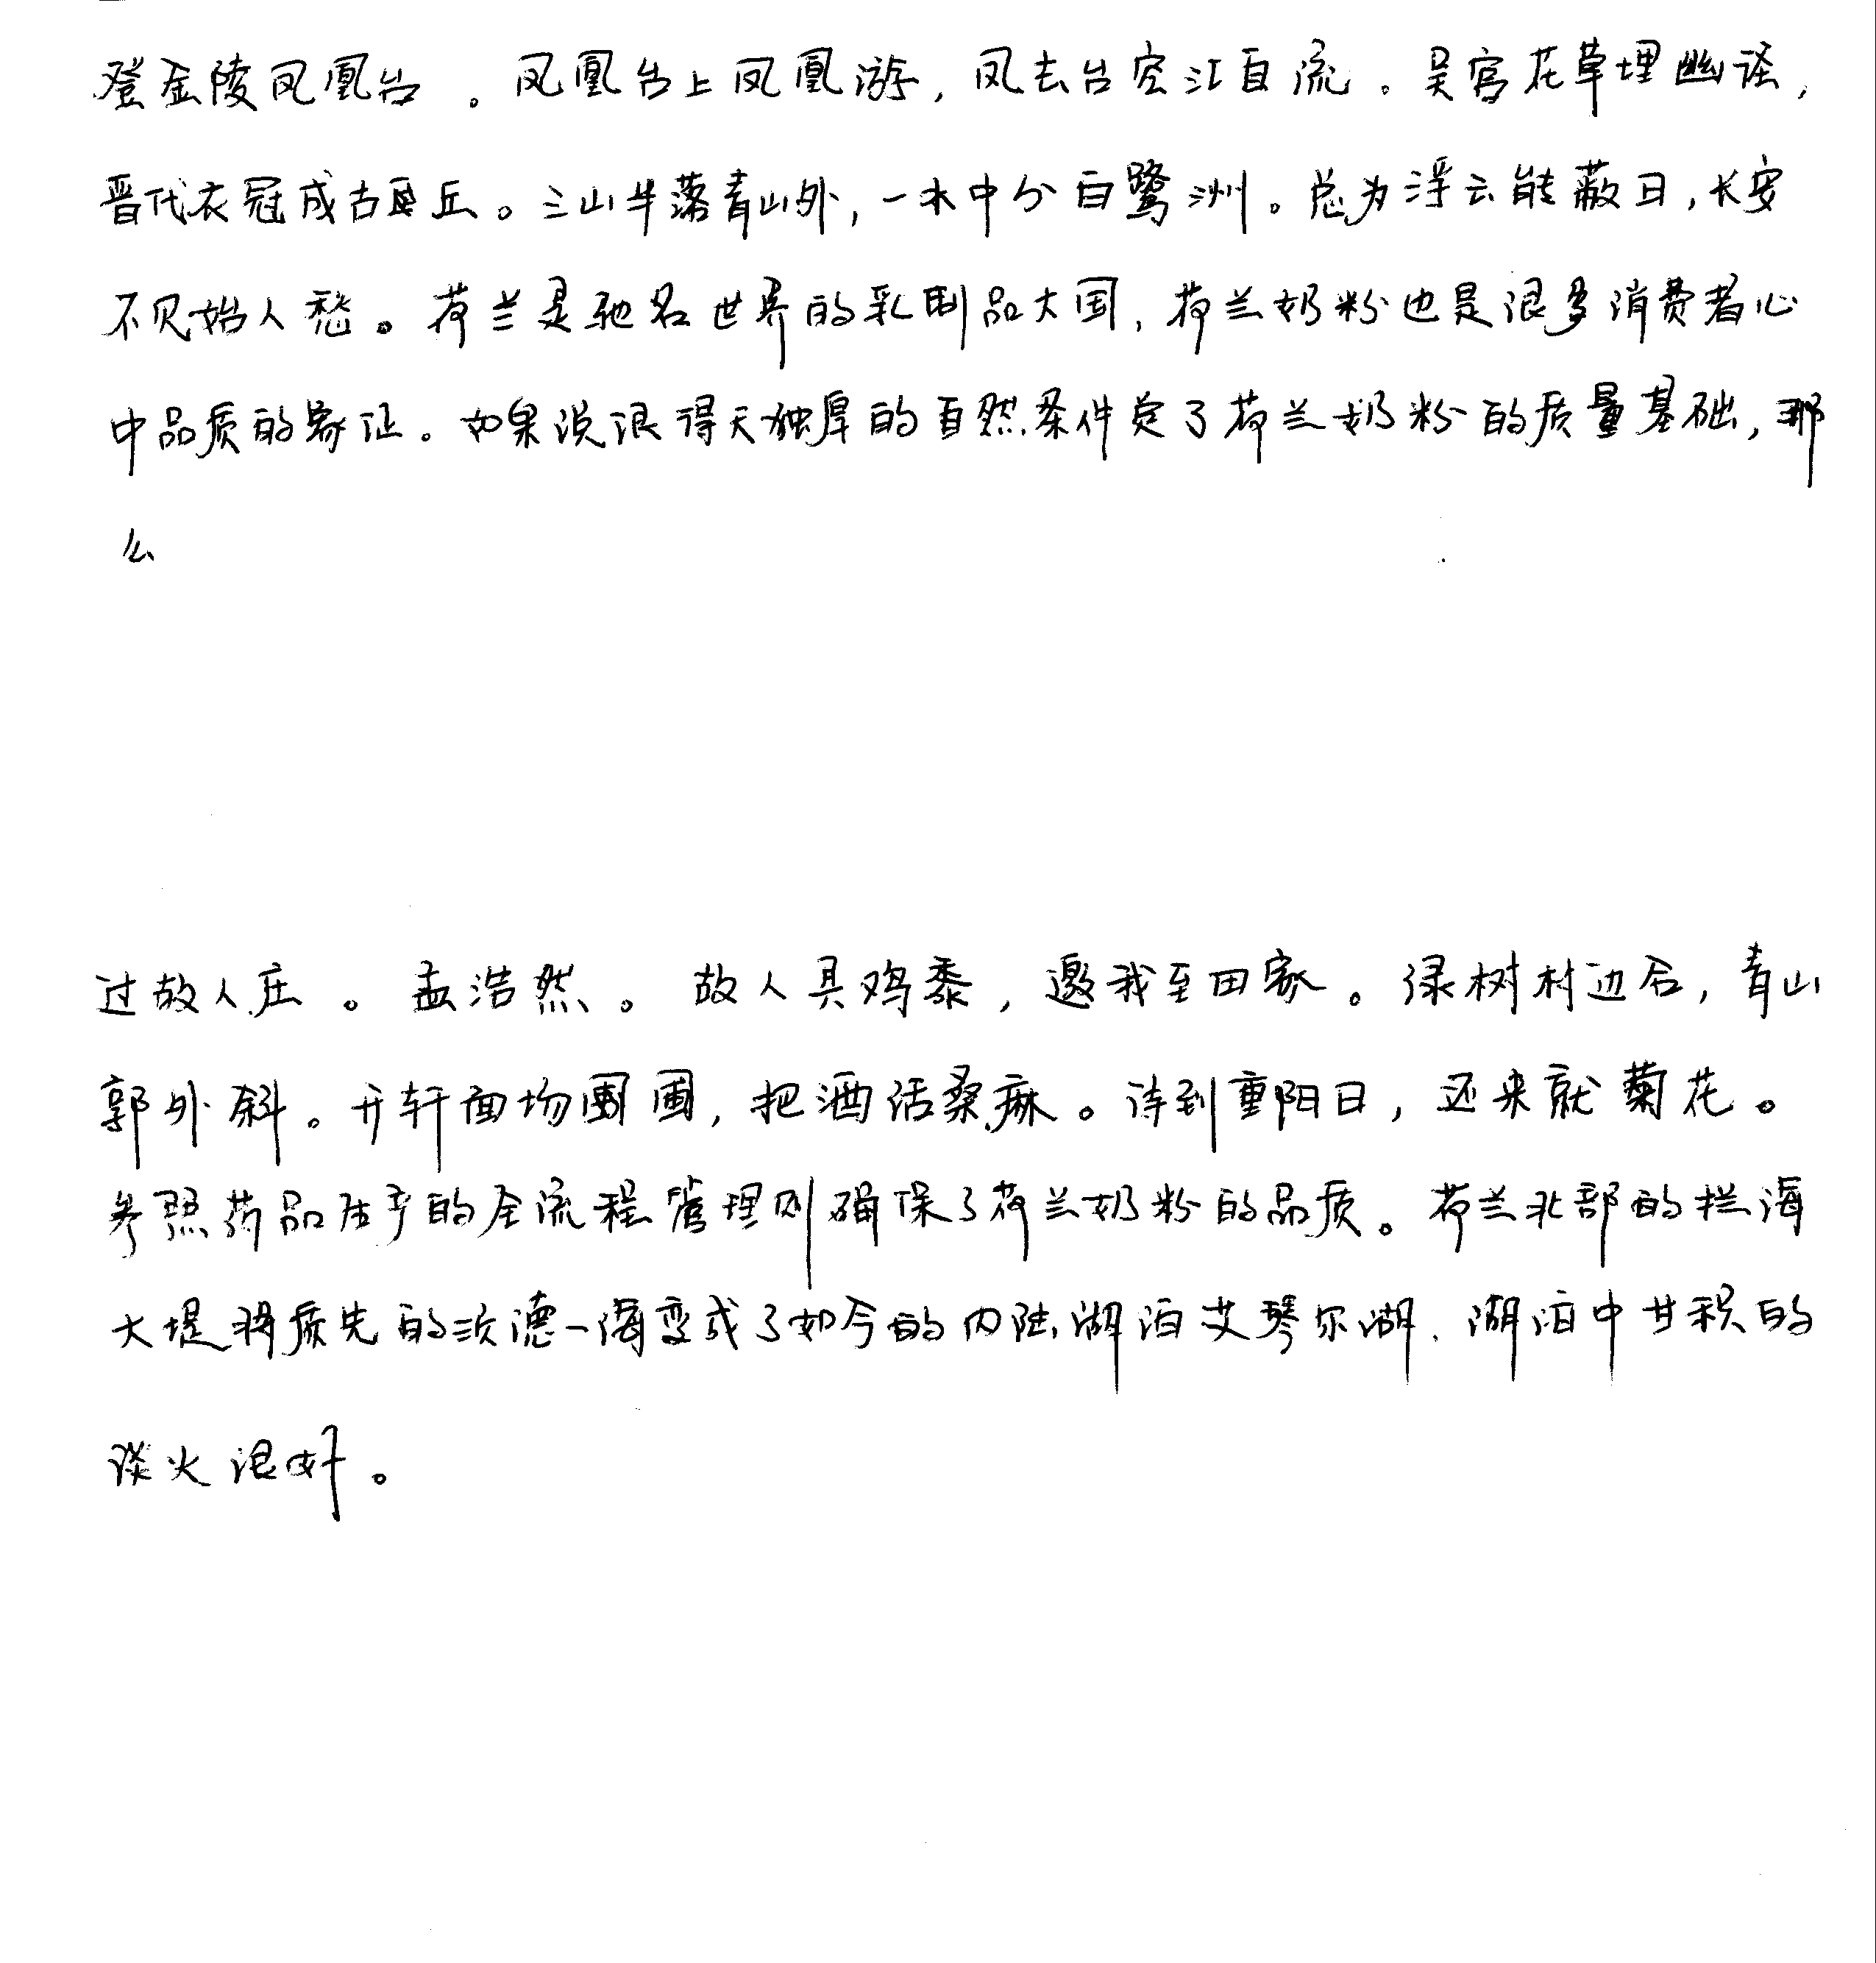 登金陵凤凰台。凤凰台上凤凰游,凤去台空江自流。吴宫花草埋幽迳,
晋代衣冠成古丘。三山半落青山外,一水中分白鹭洲。总为浮云能蔽日,长安
不见始人愁。荷兰是驰名世界的乳制品大国,荷兰奶粉也是很多消费者心
中品质的象征。如果说很得天独厚的自然条件定了荷兰奶粉的质量基础,那
么
过故人庄。孟浩然。故人具鸡黍,邀我至田家。绿树村边合,青山
郭外斜。开轩面场圃,把酒话桑麻。待到重阳日,还来就菊花。
参照药品生产的全流程管理则确保了荷兰奶粉的品质。荷兰北部的拦海
大堤将原先的须德海变成了如今的内陆湖泊艾瑟尔湖.湖泊中甘积的
淡水很好。